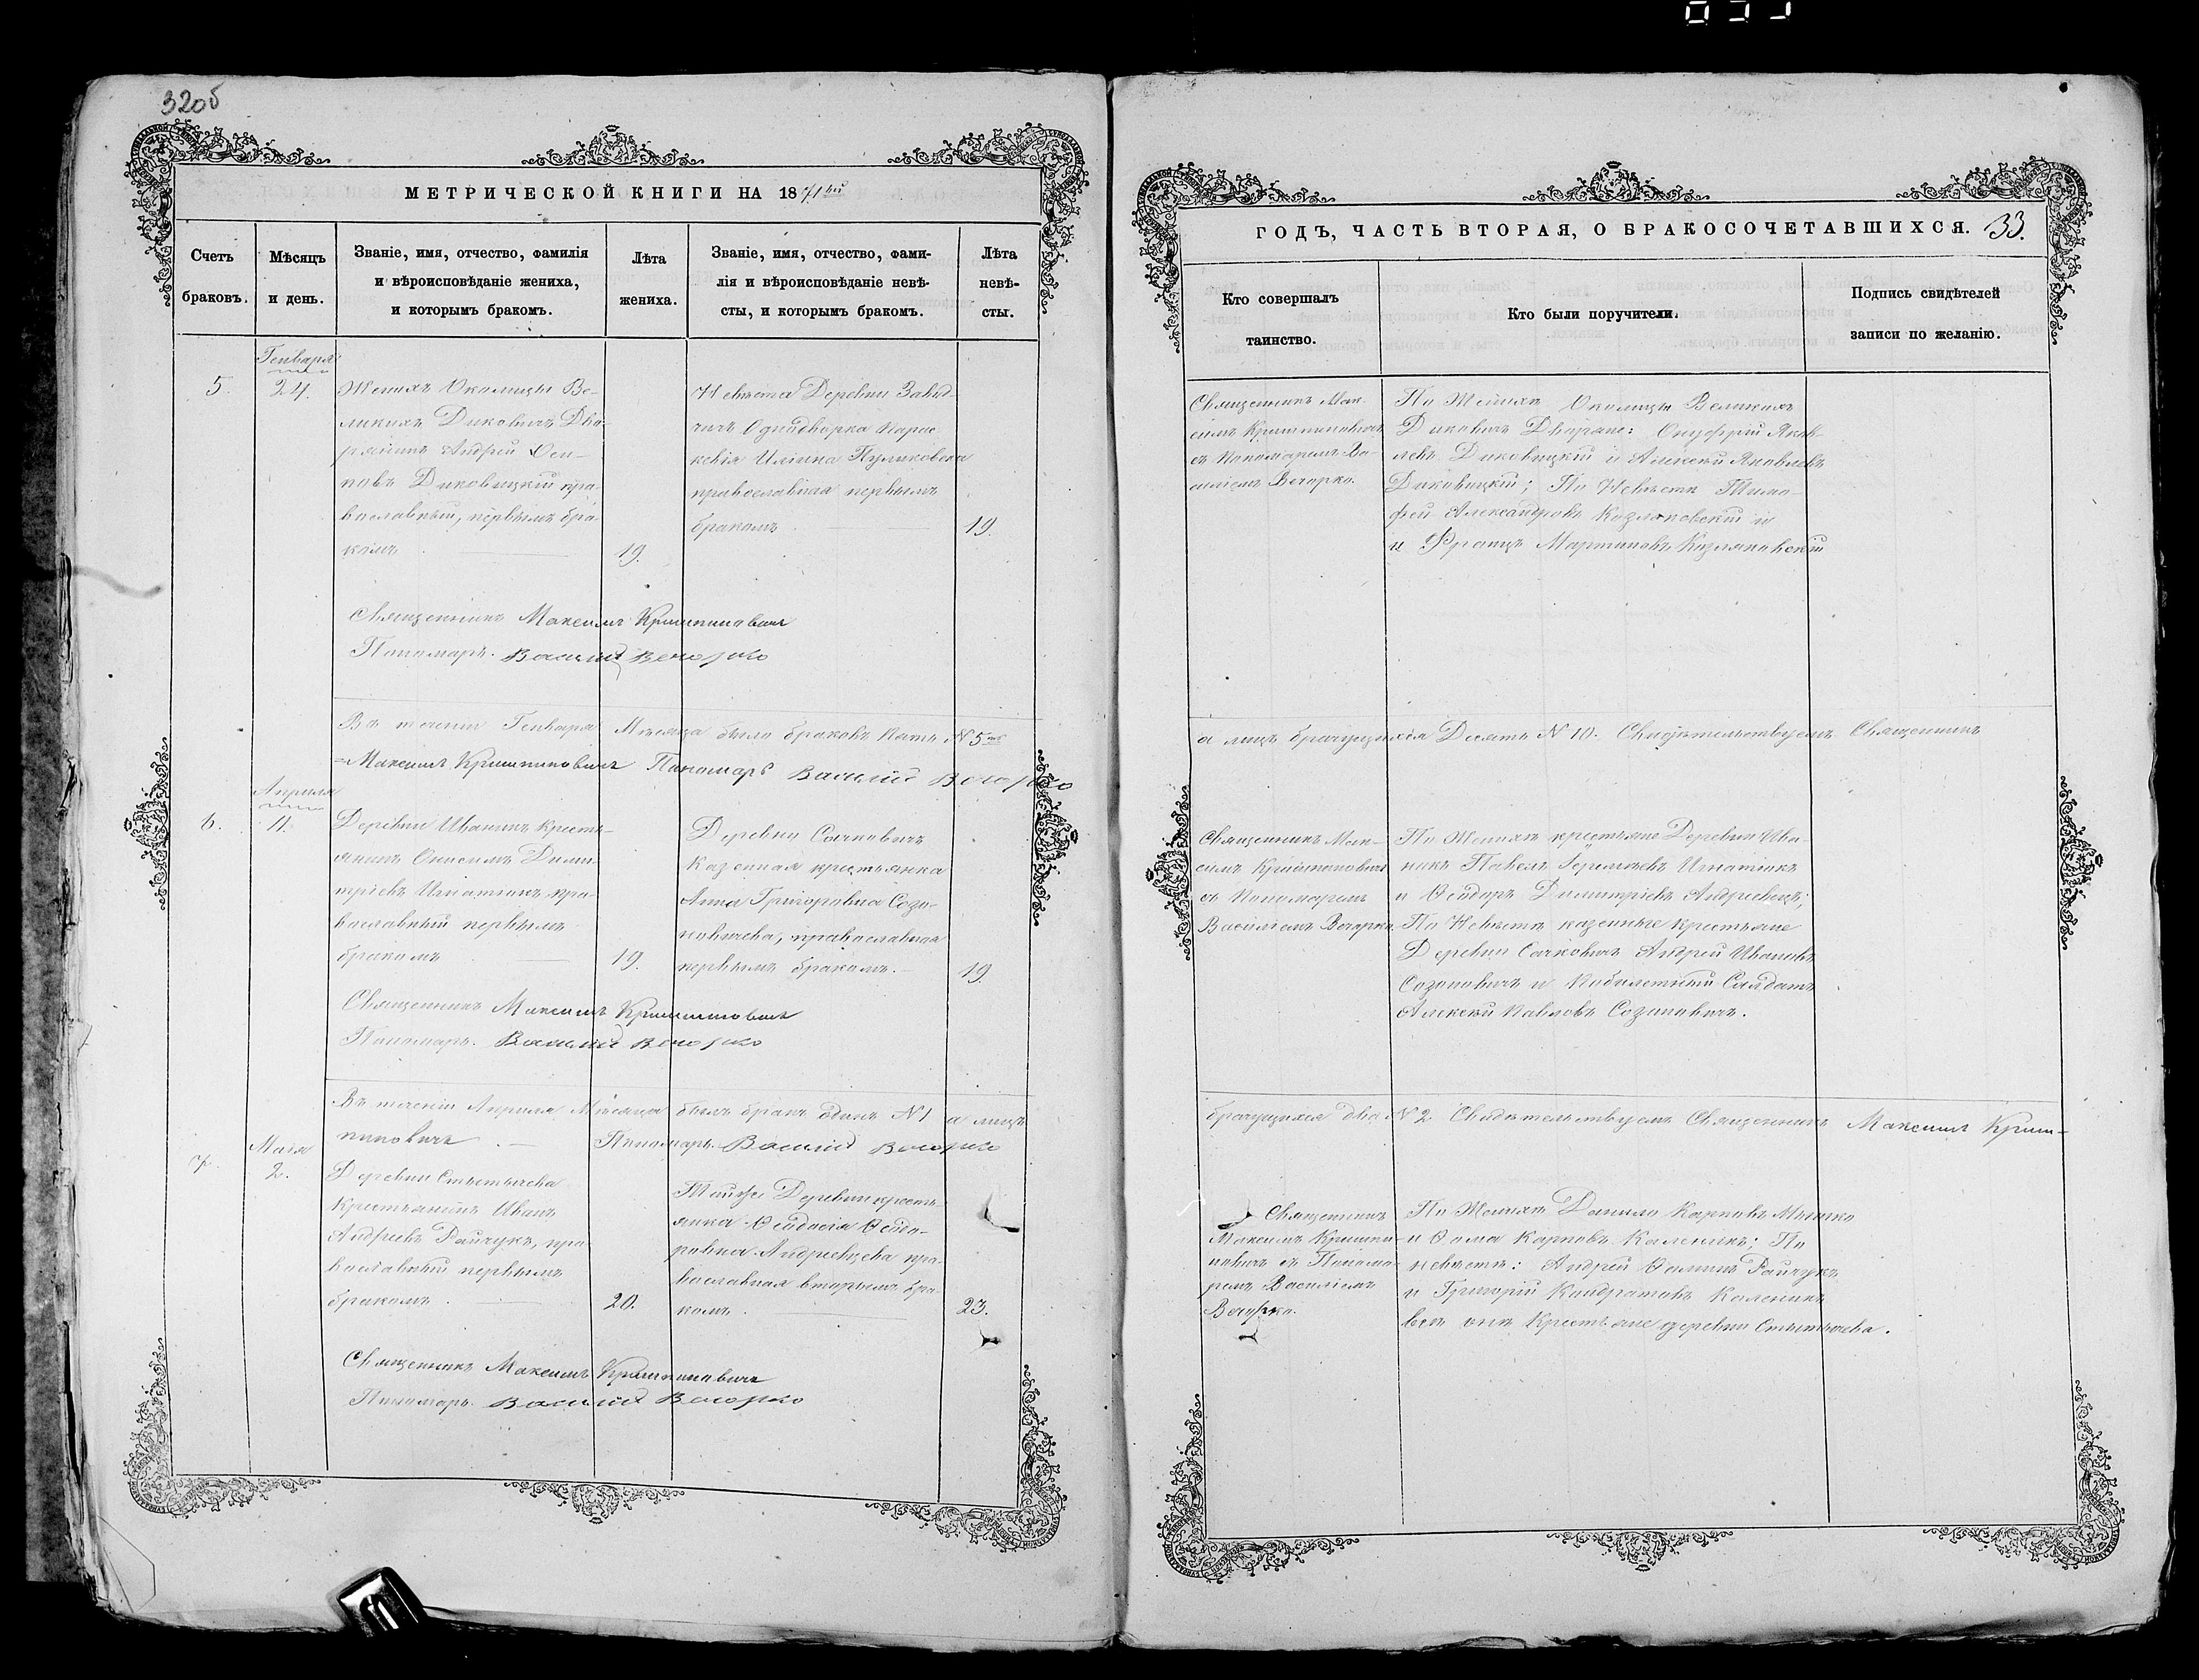 32об
МЕТРИЧЕСКОЙ КНИГИ НА 1871
Счетъ
браковъ.
Мѣсяцъ
и день.
Званіе, имя, отчество, фамилія
и вѣроисповѣданіе жениха,
и которымъ бракомъ.
Лѣта
жениха.
Званіе, имя, отчество, фами-
лія и вѣроисповѣданіе невѣ-
сты, и которымъ бракомъ.
Лѣта
невѣ-
сты.
Генваря
5.
24.
Женихъ Околицы Ве-
ликихъ Диковичъ Дво-
рянинъ Андрей Оси-
повъ Диковицкій пра-
вославный, первымъ бра-
комъ
19.
Невѣста Деревни
Однодворка Парас-
кевія Пуликовска
православная первымъ
бракомъ
19.
Священникъ Максимъ Криштиновичъ
Пономарь Василій Вечорко
Въ теченіи Генваря Мѣсяца было браковъ Пять N 5
Максимъ Криштиновичъ Пономарь Василій Вечорко
Апрѣля
6.
11.
Деревни Иваникъ Кресть-
янинъ Онисимъ Дими-
тріевъ Игнатикъ пра-
вославный первымъ
бракомъ
19.
Деревни Сачковичъ
Казенная крестьянка
Анна Григоровна Созо-
новичева, православная
первымъ бракомъ.
19.
Священникъ Максимъ Криштиновичъ
Пономарь. Василій Вечорко
Въ теченіи Апрѣля Мѣсяца былъ бракъ одинъ N 1 а лицъ
пиновичъ Пономарь Василій Вечорко
7.
Мая
2.
Деревни Стытычева
Крестьянинъ Иванъ
Андреевъ Райчукъ, пра-
вославный первымъ
бракомъ.
20.
Той же Деревни кресть-
янка Ѳеодосія Ѳедо-
ровна Андреевцева пра-
вославная вторымъ бра-
комъ.
23.
Священникъ Максимъ Криштиновичъ
Пономарь Василій Вечорко
ГОДЪ, ЧАСТЬ ВТОРАЯ, О БРАКОСОЧЕТАВШИХСЯ. 33.
Кто совершалъ
таинство.
Кто были поручители.
Подпись свидѣтелей
записи по желанію.
Священникъ Мак-
симъ Криштиновичъ
съ Пономаремъ Ва-
силіемъ Вечорко.
По Женихѣ Околицы Великихъ
Диковичъ Дворяне: Онуфрій Яков-
левъ Диковицкій и Алексѣй Яковлевъ
Диковицкій; По Невѣстѣ Тимо-
фей Александровъ Козляковскій и
и Францъ Мартиновъ Козляковскій
а лицъ брачущихся Десять N 10. Свидѣтельствуемъ Священникъ
Священникъ Мак-
симъ Криштиновичъ
съ Пономаремъ
Василіемъ Вечорко.
По Женихѣ крестьяне Деревни Ива-
никъ Павелъ Игнатикъ
и Ѳеодоръ Димитріевъ Андреевецъ;
По Невѣстѣ казенные крестьяне
Деревни Сачковичъ Андрей Ивановъ
Созоновичъ и
Алексѣй Павловъ Созоновичъ.
брачущихся два N 2 Свидѣтельствуемъ Священникъ Максимъ Криш-
Священникъ
Максимъ Кришти-
новичъ съ Понома-
ремъ Василіемъ
Вечорко.
По Женихѣ Данило Карповъ
и Ѳома Карповъ Каленикъ; По
невѣстѣ: Андрей Ѳоминъ Райчукъ
и Григорій Кондратовъ Каленикъ
всѣ они Крестьяне деревни Стытычева.